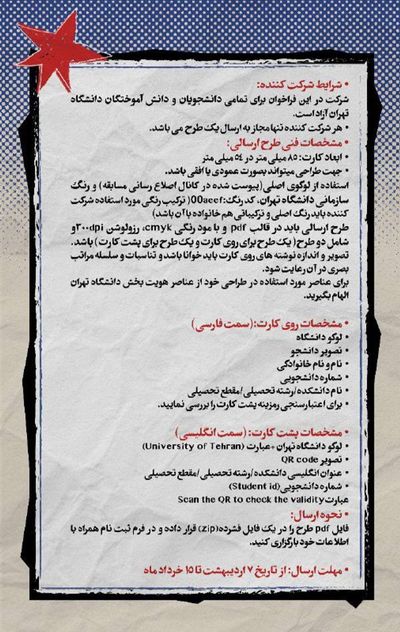 • شرایط شرکت کننده:
شرکت در این فراخوان برای تمامی دانشجویان و دانش آموختگان دانشگاه
تهران آزاد است.
• هر شرکت کننده تنها مجاز به ارسال یک طرح می باشد.
• مشخصات فنی طرح ارسالی:
• ابعاد کارت: ۸۵ میلی متر در ۵۴ میلی متر
• جهت طراحی میتواند بصورت عمودی یا افقی باشد.
استفاده از لوگوی اصلی (پیوست شده در کانال اطلاع رسانی مسابقه) و رنگ
سازمانی دانشگاه تهران، کد رنگ:00aeef# (ترکیب رنگی مورد استفاده شرکت
کننده باید رنگ اصلی و ترکیباتی هم خانواده با آن باشد)
طرح ارسالی باید در قالب pdf و با مود رنگی cmyk، رزولوشن ۳۰۰dpi و
شامل دو طرح ( یک طرح برای روی کارت و یک طرح برای پشت کارت ) باشد.
تصویر و اندازه نوشته های روی کارت باید خوانا باشد و تناسبات و سلسله مراتب
بصری در آن رعایت شود.
برای عناصر مورد استفاده در طراحی خود از عناصر هویت بخش دانشگاه تهران
الهام بگیرید.
• مشخصات روی کارت: (سمت فارسی)
• لوگو دانشگاه
• تصویر دانشجو
• نام و نام خانوادگی
• شماره دانشجویی
• نام دانشکده/رشته تحصیلی/مقطع تحصیلی
• برای اعتبارسنجی رمزینه پشت کارت را بررسی نمایید.
• مشخصات پشت کارت: (سمت انگلیسی)
• لوگو دانشگاه تهران +عبارت (University of Tehran)
• تصویر QR code
• عنوان انگلیسی دانشکده/رشته تحصیلی/مقطع تحصیلی
• شماره دانشجویی(Student id)
عبارت Scan the QR to check the validity
• نحوه ارسال:
فایل pdf طرح را در یک فایل فشرده(zip) قرار داده و در فرم ثبت نام همراه با
اطلاعات خود بارگزاری کنید.
• مهلت ارسال: از تاریخ ۷ اردیبهشت تا ۱۵ خرداد ماه